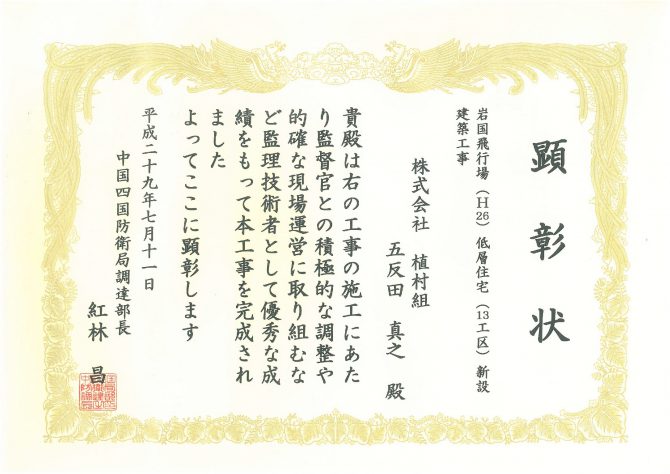 顕彰状
岩国飛行場（H26）低層住宅（13工区）新設
建築工事
株式会社 植村組
五反田 真之 殿
貴殿は右の工事の施工にあた
り監督官との積極的な調整や
的確な現場運営に取り組むな
ど監理技術者として優秀な成
績をもって本工事を完成され
ました
よってここに顕彰します
平成二十九年七月十一日
中国四国防衛局調達部長
紅林 昌